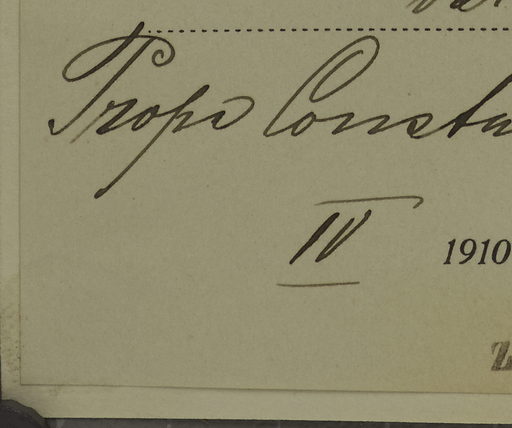 Props Consta
IV 1910